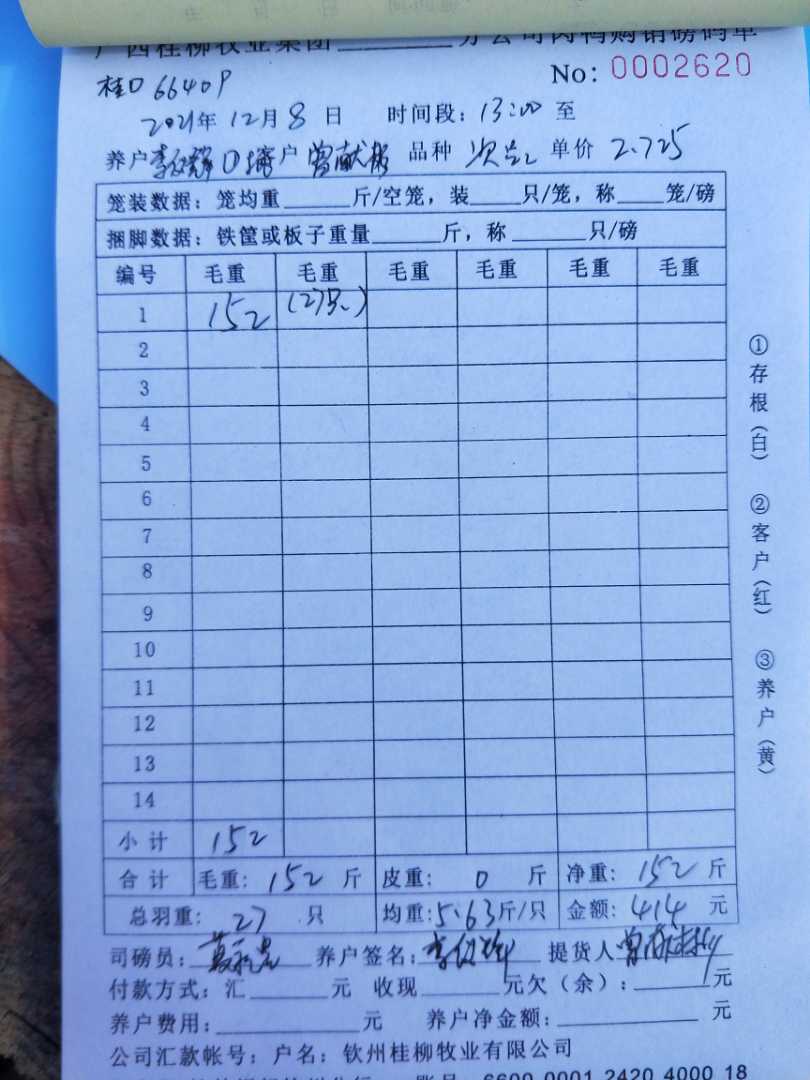 广西桂柳牧业集团________分公司肉鸭购销磅码单
桂D 66409
No: 0002620
2021年 12月 8 日 时间段: 13:00 至
养户 客户 品种 次品 单价 2.725
笼装数据: 笼均重______斤/空笼, 装____只/笼, 称____笼/磅
捆脚数据: 铁筐或板子重量______斤, 称______只/磅
编号 毛重 毛重 毛重 毛重 毛重 毛重
1 152 (27只)
2
3
4
5
6
7
8
9
10
11
12
13
14
小计 152
合计 毛重: 152 斤 皮重: 0 斤 净重: 152 斤
总羽重: 27 只 均重: 5.63斤/只 金额: 414 元
司磅员: 养户签名: 提货人
付款方式: 汇______元 收现______元欠(余):______元
养户费用:__________元 养户净金额:__________元
公司汇款帐号: 户名: 钦州桂柳牧业有限公司
6600 0001 2420 4000 18
①存根(白) ②客户(红) ③养户(黄)